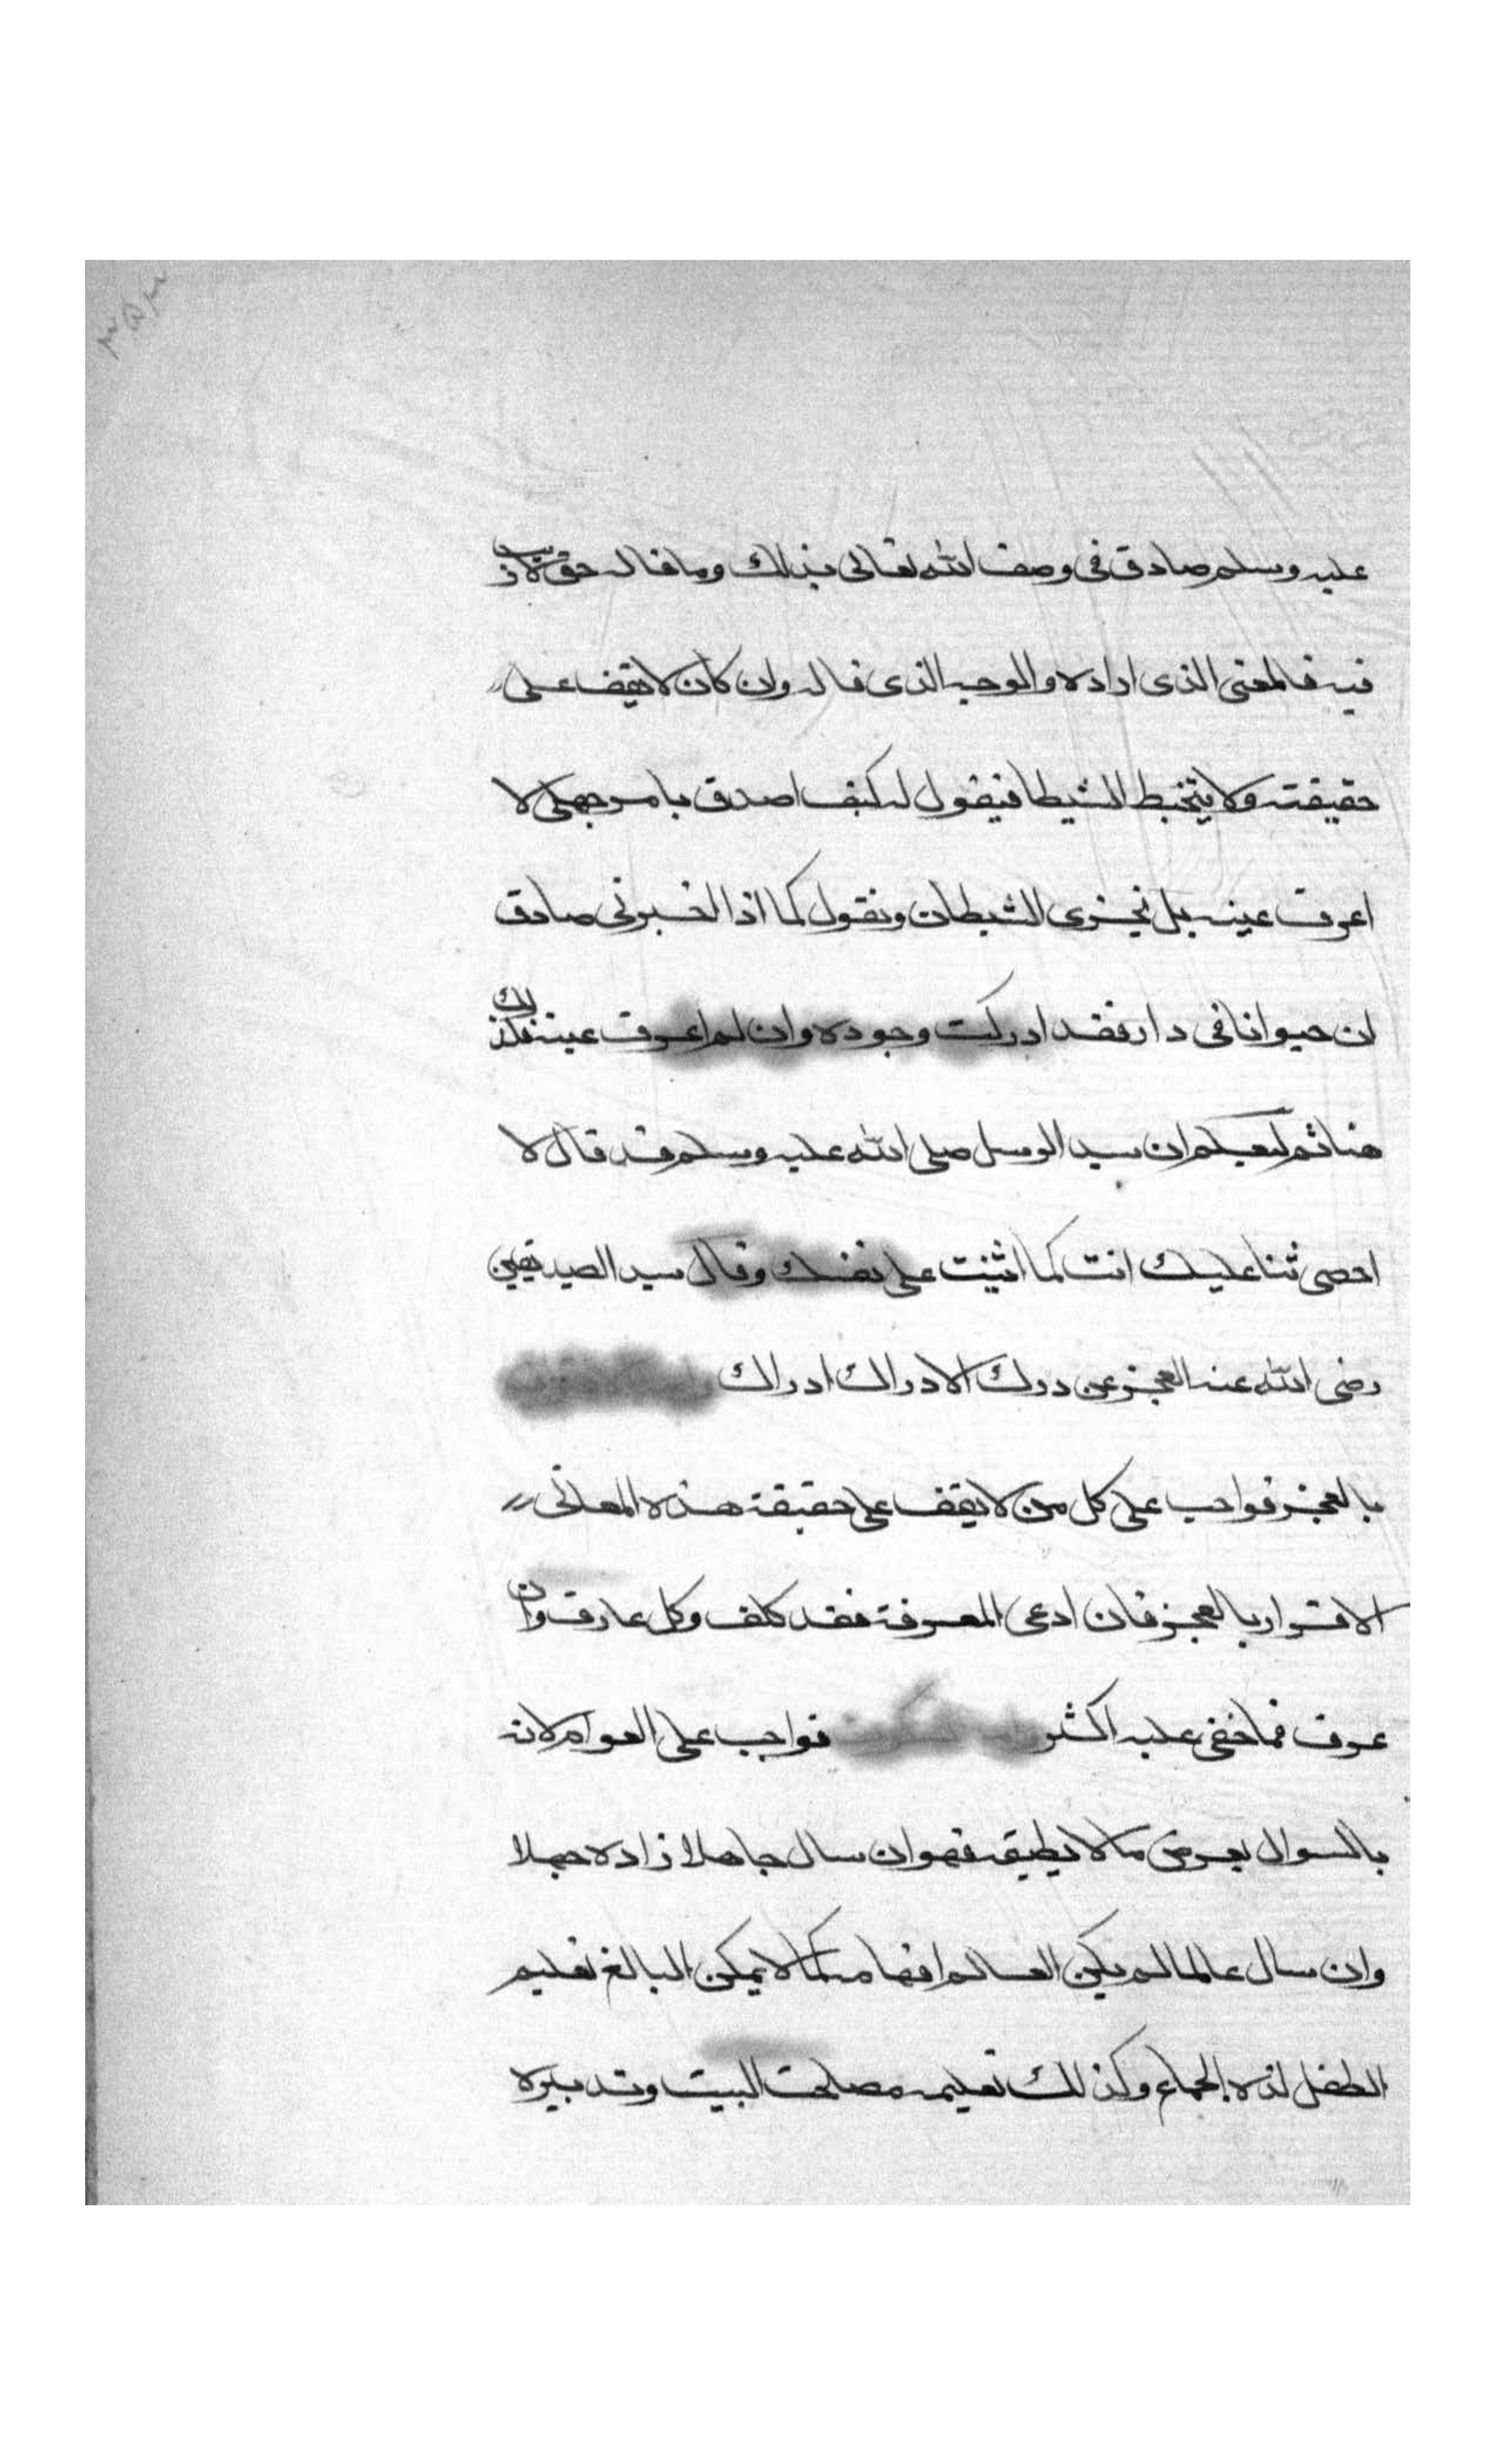 عليه وسلم صادق فى وصف الله تعالى بذلك وما قاله حق لا ريب
فيه فالمعنى الذى اراده والوجه الذى قاله وان كان لا يقف على
حقيقته ولا يتخبط الشيطا فيقول له كيف اصدق بامر جهلى لا
اعرف عينه بل نخزى الشيطان ونقول كما اذا اخبرنى صادق
ان حيوانا فى دار فقد ادركت وجوده وان لم اعرف عينه فكذلك
هنا ثم ليعلم ان سيد الرسل صلى الله عليه وسلم قد قال لا
احصى ثنا عليك انت كما اثنيت على نفسك وقال سيد الصديقين
رضى الله عنه العجز عن درك الادراك ادراك
بالعجز فواجب على كل من لا يقف على حقيقة هذه المعانى
الاقرار بالعجز فان ادعى المعرفة فقد كلف وكل عارف وان
عرف فما خفى عليه اكثر فواجب على العوام لانه
بالسوال يعرض ما لا يطيقه فهو ان سال جاهلا زاده جهلا
وان سال عالما لم يكن العالم افهامه كما لا يمكن البالغ تعليم
الطفل لذه الجماع وكذلك تعليمه مصلحت البيت وتدبيره